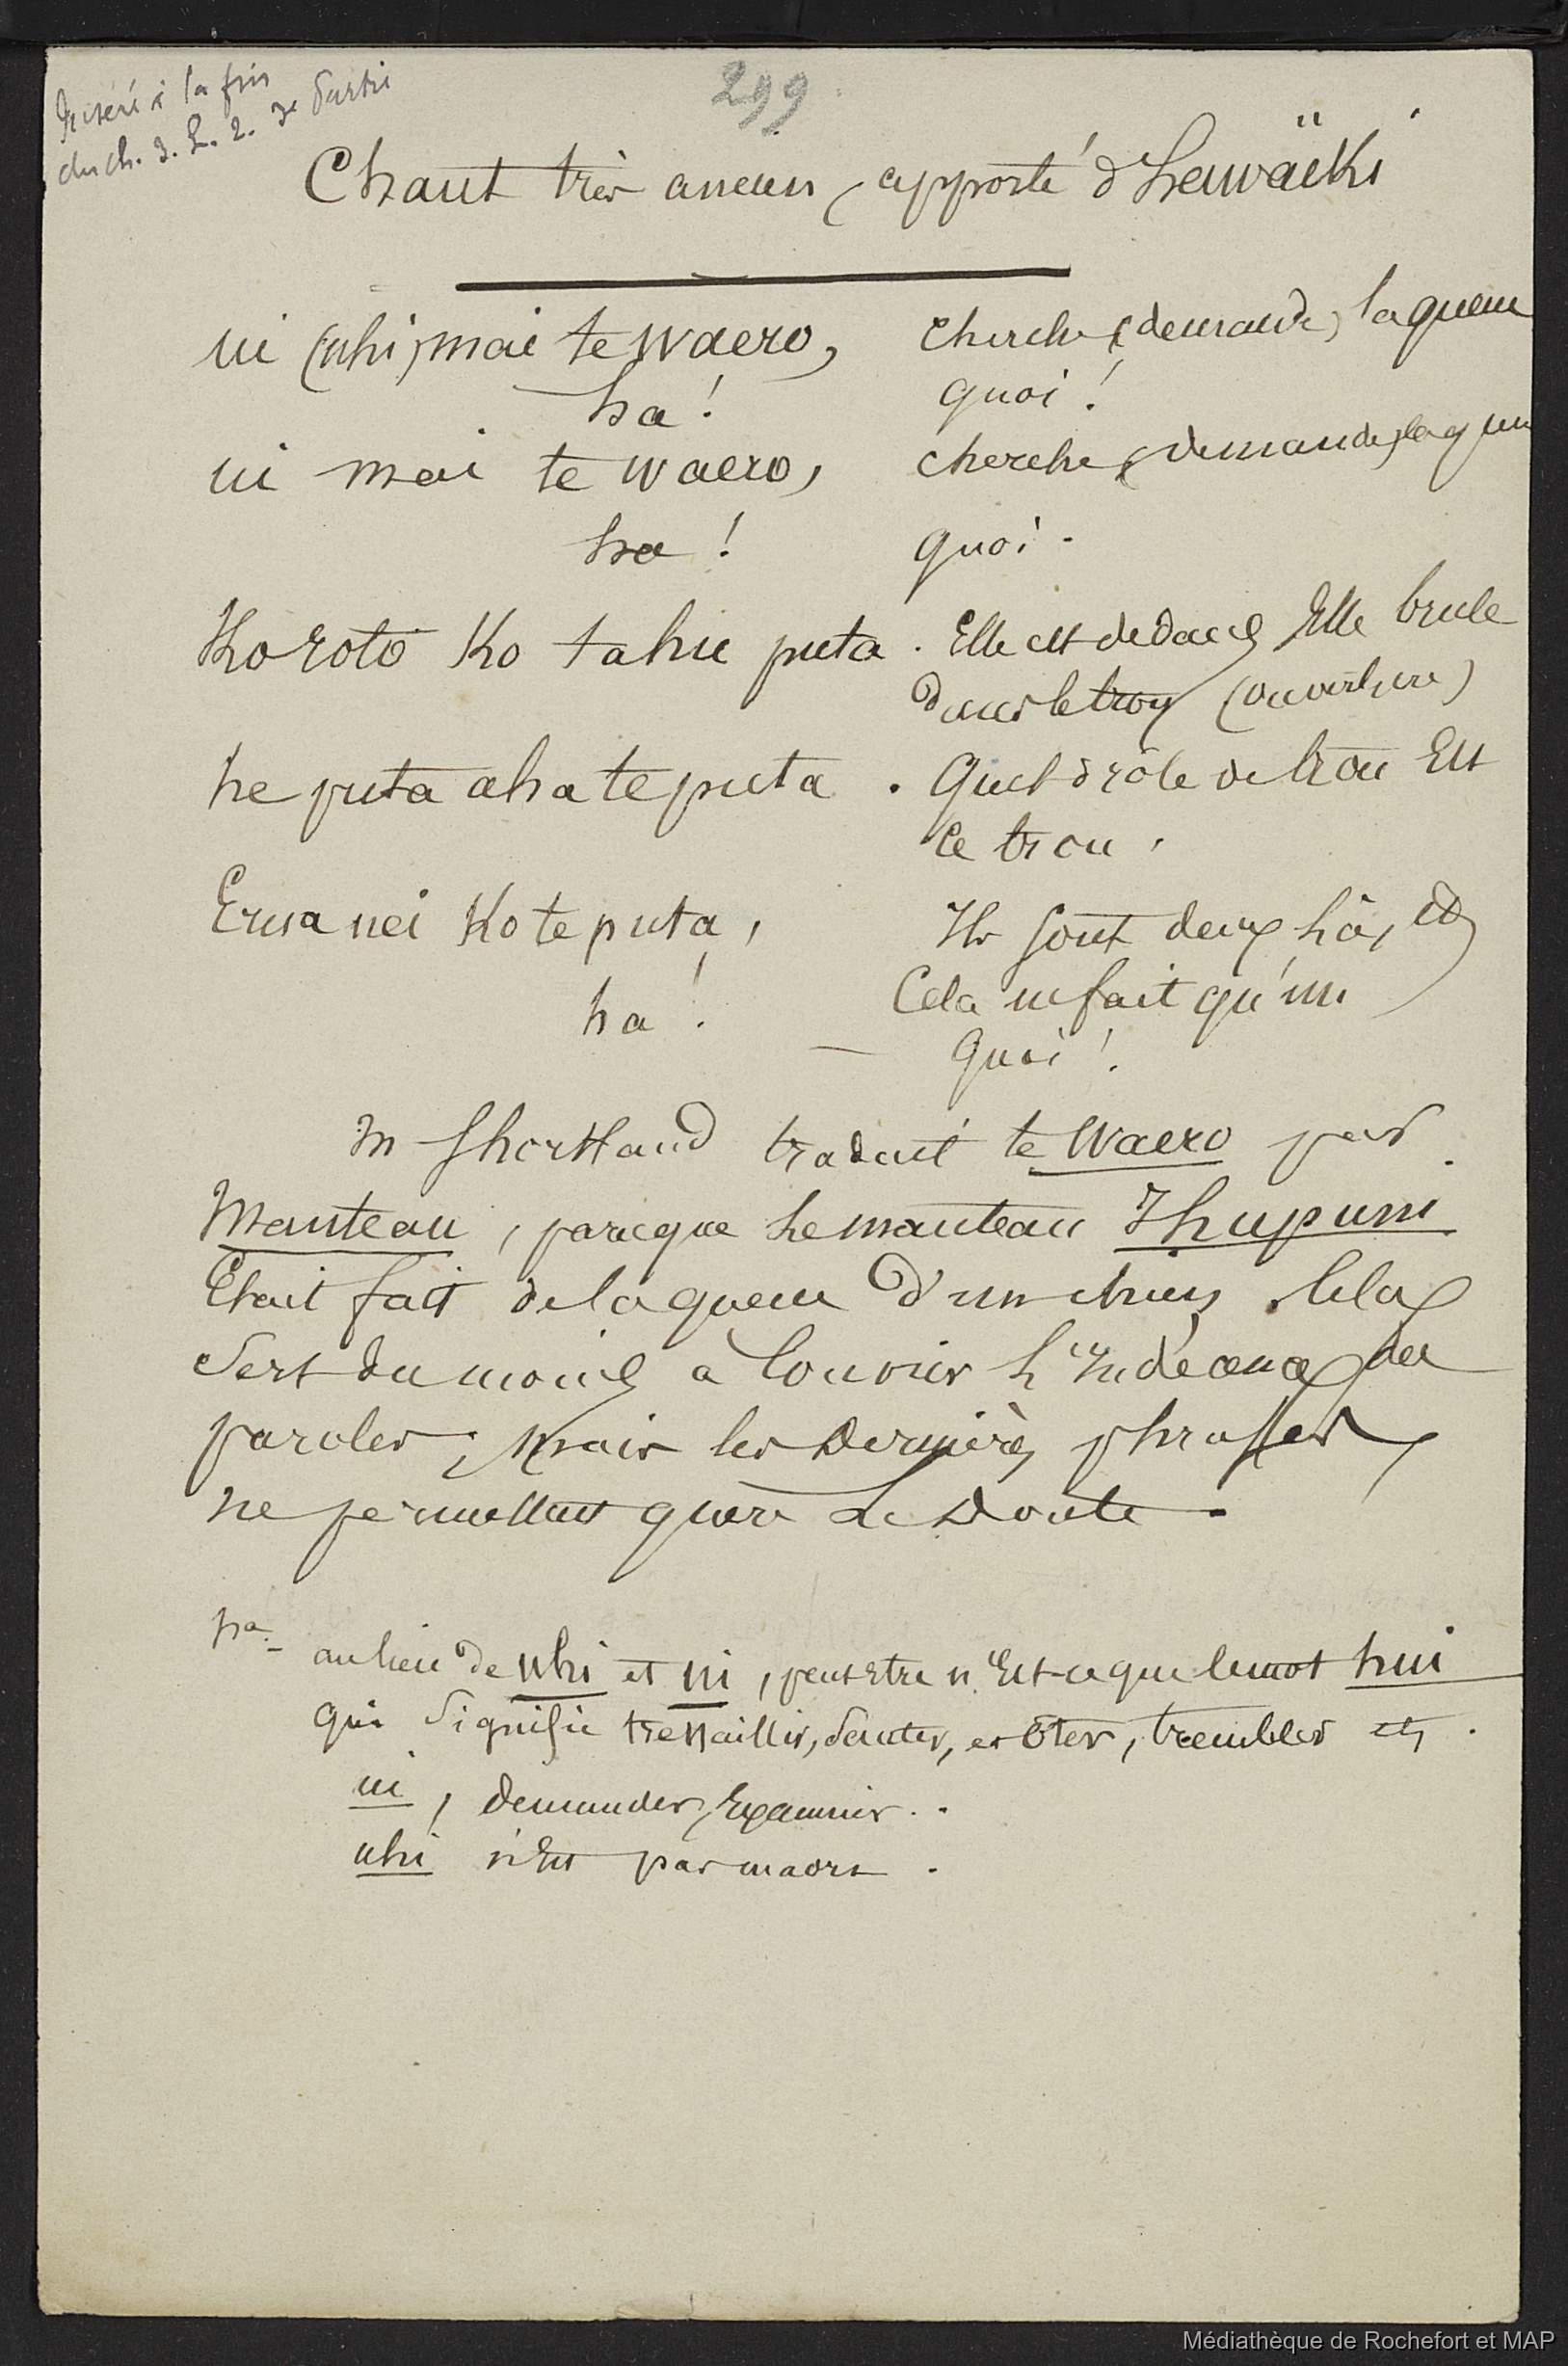 Inséré à la fin
du ch. 3. L. 2. 3e Partie
299
Chant très ancien, apporté d'hawaïki
ui (uhi) mai te waero, cherche (demande) la queue
ha! quoi!
ui mai te waero, cherche (demande) la queue
ha! quoi.
Ko roto Ko tahu puta. Elle est dedans, Elle brule
dans le trou (ouverture)
he puta aha te puta. Quel drôle de trou Est
le trou.
Erua nei Ko te puta, Ils sont deux là, et
Cela ne fait qu'un
ha! — Quoi!
M Shortland traduit te Waero par
Manteau, parceque le manteau Ihupuni
Etait fait de la queue d'un chien. Cela
sert du moins à couvrir l'indécence des
paroles; mais les dernières phrases
ne permettent guère le doute.
na. au lieu de uhi et ui, peut Etre n'Est-ce que le mot hui
qui signifie tressaillir, sauter, ex ôter, trembler etc.
ui, demander, Examiner..
uhi n'Est pas maori.
Médiathèque de Rochefort et MAP